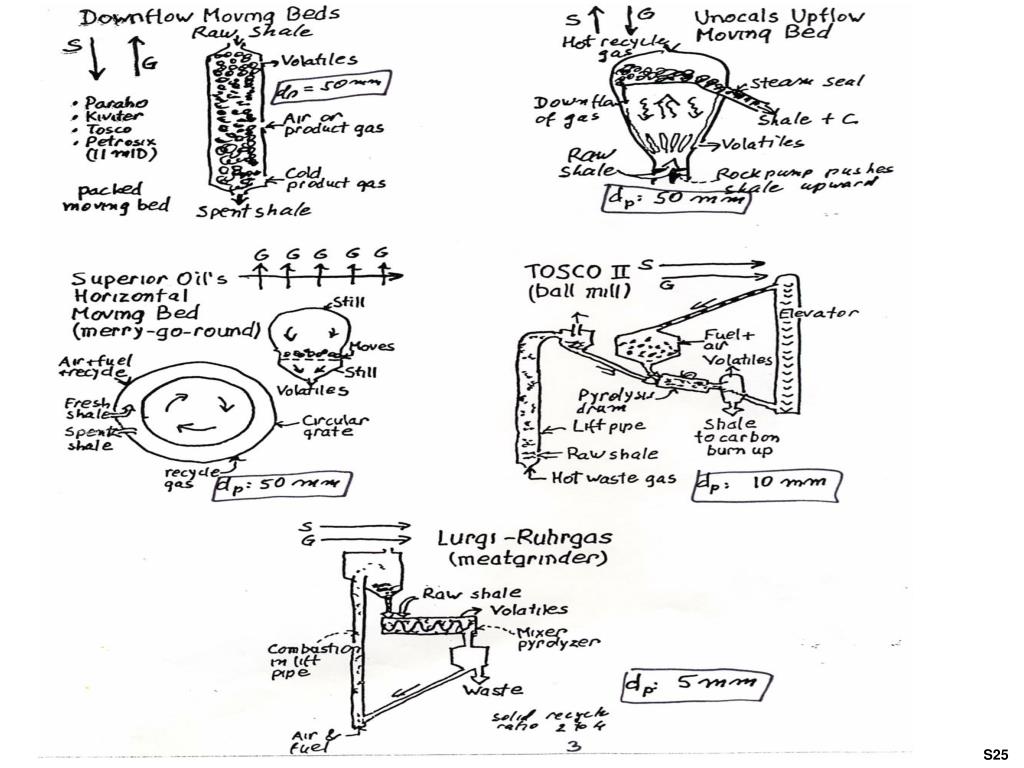 Downflow Moving Beds
Raw Shale
S
G
Volatiles
dp = 50 mm
• Paraho
• Kiviter
• Tosco
• Petrosix
(11 m ID)
Air or
product gas
packed
moving bed
Cold
product gas
Spent shale
S
G
Unocals Upflow
Moving Bed
Hot recycle
gas
Steam seal
Downflow
of gas
Shale + C
Volatiles
Raw
Shale
Rock pump pushes
shale upward
dp: 50 mm
G G G G G
Superior Oil's
Horizontal
Moving Bed
(merry-go-round)
Still
Moves
Still
Volatiles
Air + fuel
+ recycle
Fresh
shale
Spent
shale
Circular
grate
recycle
gas
dp: 50 mm
TOSCO II
(ball mill)
S
G
Elevator
Fuel +
air
Volatiles
Pyrolysis
drum
Lift pipe
Shale
to carbon
burn up
Raw shale
Hot waste gas
dp: 10 mm
S
G
Lurgi-Ruhrgas
(meatgrinder)
Raw shale
Volatiles
Mixer
pyrolyzer
Combastion
in lift
pipe
Waste
dp: 5 mm
solid recycle
ratio 2 to 4
Air &
fuel
3
S25